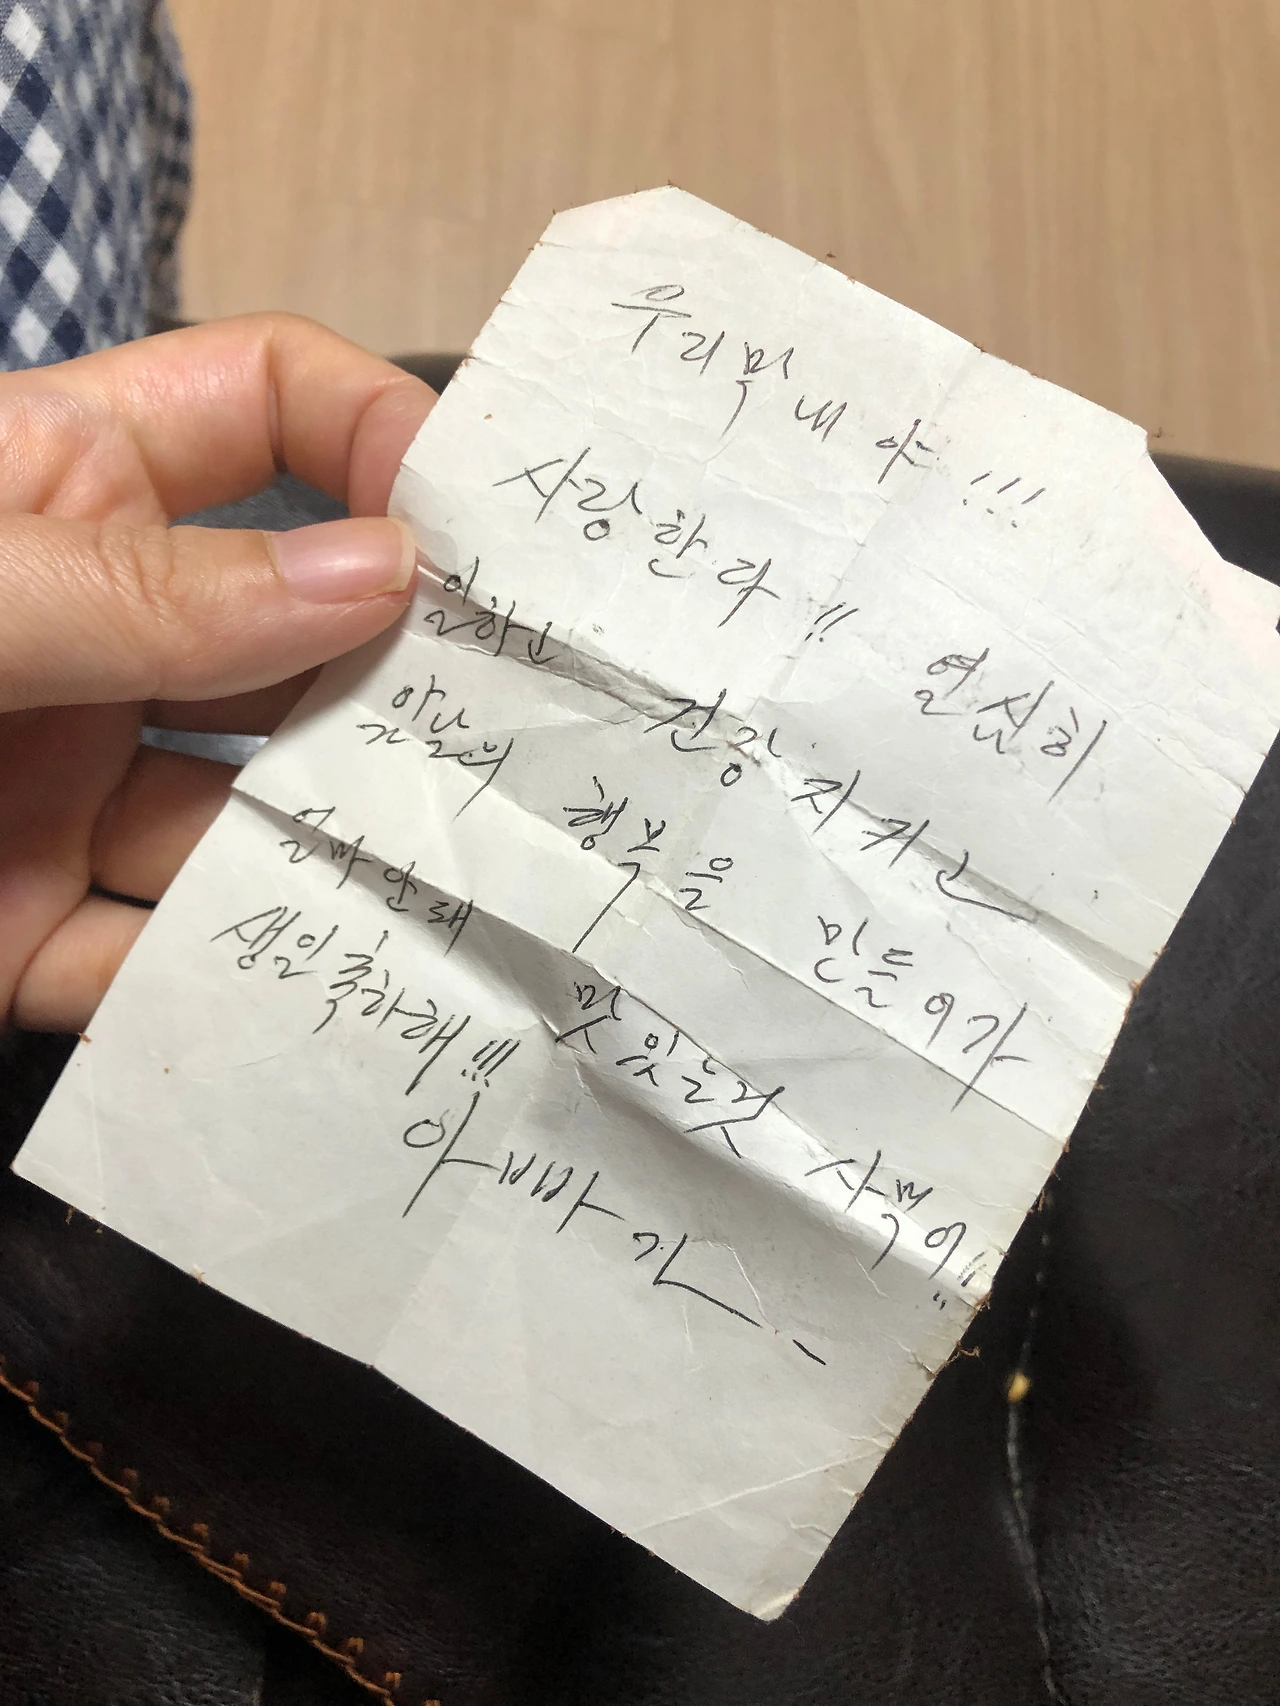 우리막내야!!!
사랑한다!! 열심히
일하고 건강지키고
앞날의 행복을 만들어가
얼마안돼 맛있는것 사먹어!!
생일축하해!!!
아빠가